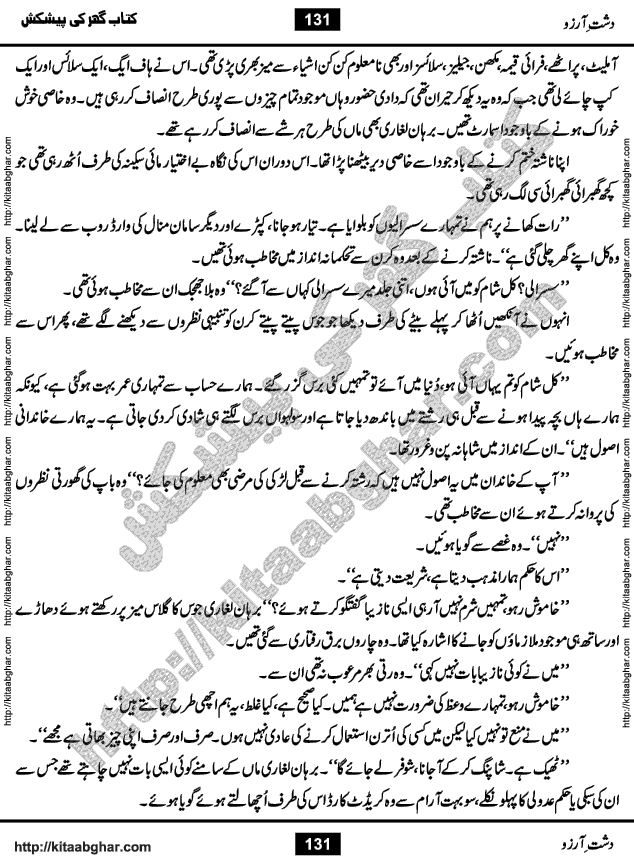 کتاب گھر کی پیشکش 131 دشتِ آرزو
آملیٹ، پراٹھے، فرائی قیمہ، مکھن، جیلیز، سلائسز اور بھی نا معلوم کن کن اشیاء سے میز بھری پڑی تھی۔ اس نے ہاف ایگ، ایک سلائس اور ایک
کپ چائے لی تھی جب کہ وہ یہ دیکھ کر حیران تھی کہ دادی حضور وہاں موجود تمام چیزوں سے پوری طرح انصاف کر رہی ہیں۔ وہ خاصی خوش
خوراک ہونے کے باوجود اسمارٹ تھیں۔ برہان لغاری بھی ماں کی طرح ہر شے سے انصاف کر رہے تھے۔
اپنا ناشتہ ختم کرنے کے باوجود اسے خاصی دیر بیٹھنا پڑا تھا۔ اس دوران اس کی نگاہ بے اختیار مائی سکینہ کی طرف اُٹھ رہی تھی جو
کچھ گھبرائی گھبرائی سی لگ رہی تھی۔
’’رات کھانے پر ہم نے تمہارے سسرالیوں کو بلوایا ہے۔ تیار ہو جانا، کپڑے اور دیگر سامان منال کی وارڈ روب سے لے لینا۔
وہ کل اپنے گھر چلی گئی ہے‘‘۔ ناشتہ کرنے کے بعد وہ کرن سے تحکمانہ انداز میں مخاطب ہوئی تھیں۔
’’سسرالی؟ کل شام کو میں آئی ہوں، اتنی جلد میرے سسرالی کہاں سے آ گئے؟‘‘ وہ بلا جھجک ان سے مخاطب ہوئی تھی۔
انہوں نے آنکھیں اُٹھا کر پہلے بیٹے کی طرف دیکھا جو جوس پیتے پیتے کرن کو تنبیہی نظروں سے دیکھنے لگے تھے، پھر اس سے
مخاطب ہوئیں۔
’’کل شام کو تم یہاں آئی ہو، دُنیا میں آئے تو تمہیں کئی برس گزر گئے۔ ہمارے حساب سے تمہاری عمر بہت ہو گئی ہے، کیونکہ
ہمارے ہاں بچہ پیدا ہونے سے قبل ہی رشتے میں باندھ دیا جاتا ہے اور سولہواں برس لگتے ہی شادی کر دی جاتی ہے۔ یہ ہمارے خاندانی
اصول ہیں‘‘۔ ان کے انداز میں شاہانہ پن و غرور تھا۔
’’آپ کے خاندان میں یہ اصول نہیں ہیں کہ رشتہ کرنے سے قبل لڑکی کی مرضی بھی معلوم کی جائے؟‘‘ وہ باپ کی گھورتی نظروں
کی پروا نہ کرتے ہوئے ان سے مخاطب تھی۔
’’نہیں‘‘۔ وہ غصے سے گویا ہوئیں۔
’’اس کا حکم ہمارا مذہب دیتا ہے، شریعت دیتی ہے‘‘۔
’’خاموش رہو، تمہیں شرم نہیں آ رہی ایسی نازیبا گفتگو کرتے ہوئے؟‘‘ برہان لغاری جوس کا گلاس میز پر رکھتے ہوئے دھاڑے
اور ساتھ ہی موجود ملازماؤں کو جانے کا اشارہ کیا تھا۔ وہ چاروں برق رفتاری سے گئی تھیں۔
’’میں نے کوئی نازیبا بات نہیں کہی‘‘۔ وہ رتی بھر مرعوب نہ تھی ان سے۔
’’خاموش رہو، تمہارے وعظ کی ضرورت نہیں ہے ہمیں۔ کیا صحیح ہے، کیا غلط، یہ ہم اچھی طرح جانتے ہیں‘‘۔
’’میں نے منع تو نہیں کیا لیکن میں کسی کی اُترن استعمال کرنے کی عادی نہیں ہوں۔ صرف اور صرف اپنی چیز بھاتی ہے مجھے‘‘۔
’’ٹھیک ہے۔ شاپنگ کر کے آ جانا، شوفر لے جائے گا‘‘۔ برہان لغاری ماں کے سامنے کوئی ایسی بات نہیں چاہتے تھے جس سے
ان کی سبکی یا حکم عدولی کا پہلو نکلے، سو بہت آرام سے وہ کریڈٹ کارڈ اس کی طرف اُچھالتے ہوئے گویا ہوئے۔
http://kitaabghar.com
http://kitaabghar.com
http://kitaabghar.com
http://kitaabghar.com
http://kitaabghar.com
http://kitaabghar.com
http://kitaabghar.com
http://kitaabghar.com
http://kitaabghar.com
http://kitaabghar.com
http://kitaabghar.com
http://kitaabghar.com
کتاب گھر کی پیشکش
http://kitaabghar.com
http://kitaabghar.com 131 دشتِ آرزو